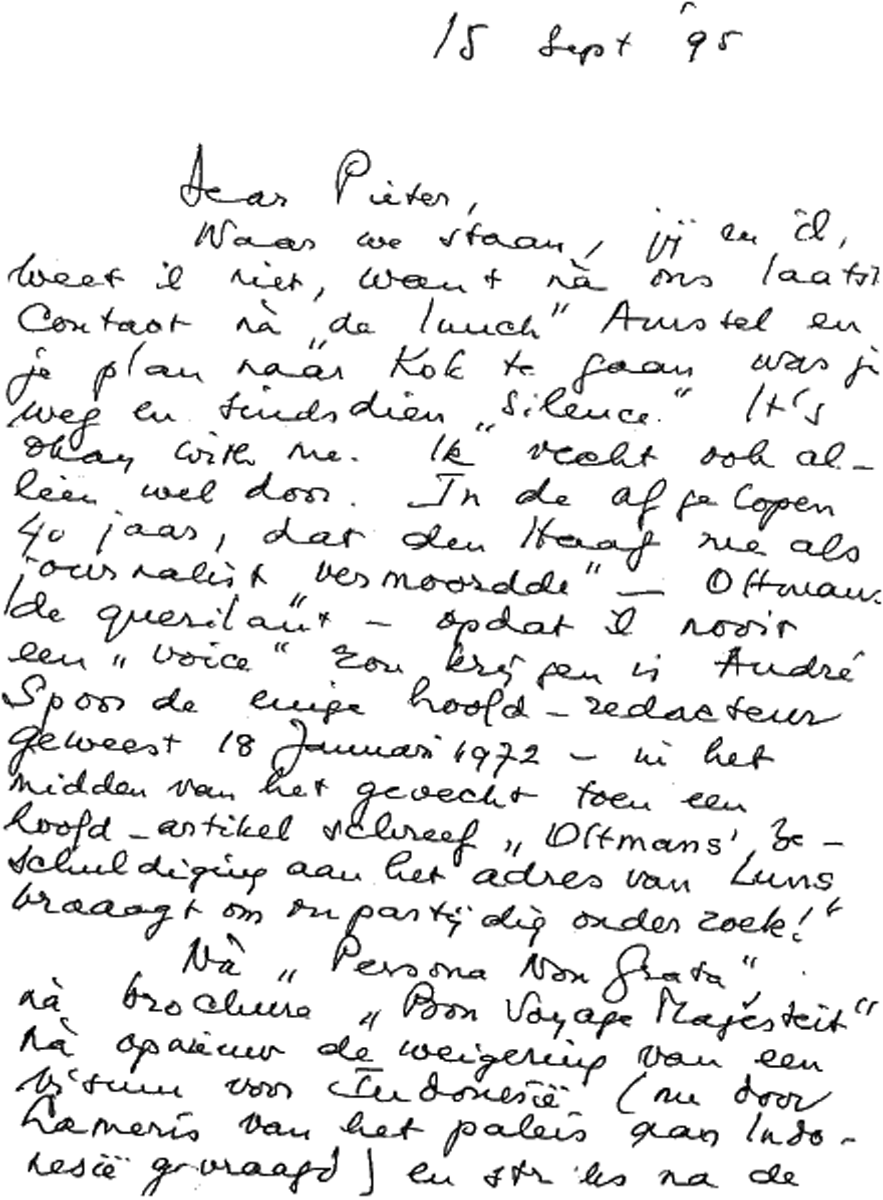 15 Sept '95
Dear Pieter,
Waar we staan, jij en ik,
weet ik niet, want nà ons laatst
Contact nà „de lunch" Amstel en
je plan naar Kok te gaan was je
weg en sindsdien „silence." It's
okay with me. Ik vecht ook al-
leen wel door. In de afgelopen
40 jaar, dat den Haag me als
journalist „vermoordde" — Oltmans
de querilant — opdat ik nooit
een „voice" zou krijgen is André
Spoor de enige hoofd-redacteur
geweest 18 Januari 1972 — in het
midden van het gevecht toen een
hoofd-artikel schreef „Oltmans' be-
schuldiging aan het adres van Luns
vraagt om onpartijdig onderzoek!"
Nà „Persona Non Grata",
nà brochure „Bon Voyage Majesteit"
nà opnieuw de weigering van een
visum voor Indonesië (nu door
kameris van het paleis aan Indo-
nesië gevraagd) en straks na de